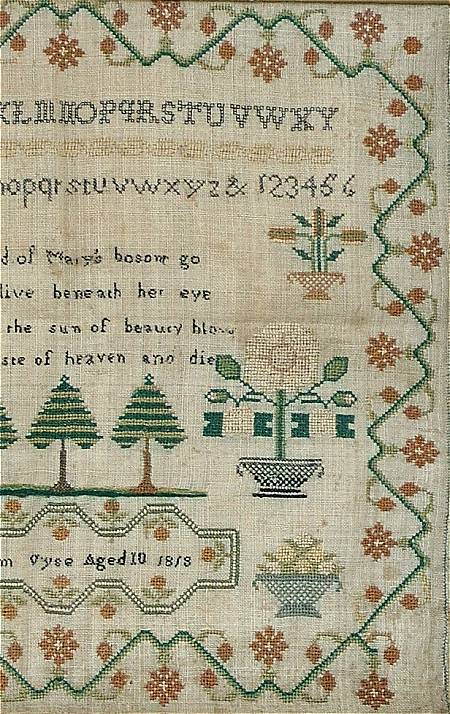 KLMNOPQRSTUVWXY
nopqrstuvwxyz& 123456
d of Mary's bosom go
live beneath her eye
the sun of beauty blow
ste of heaven and die
m Vyse Aged 10 1818